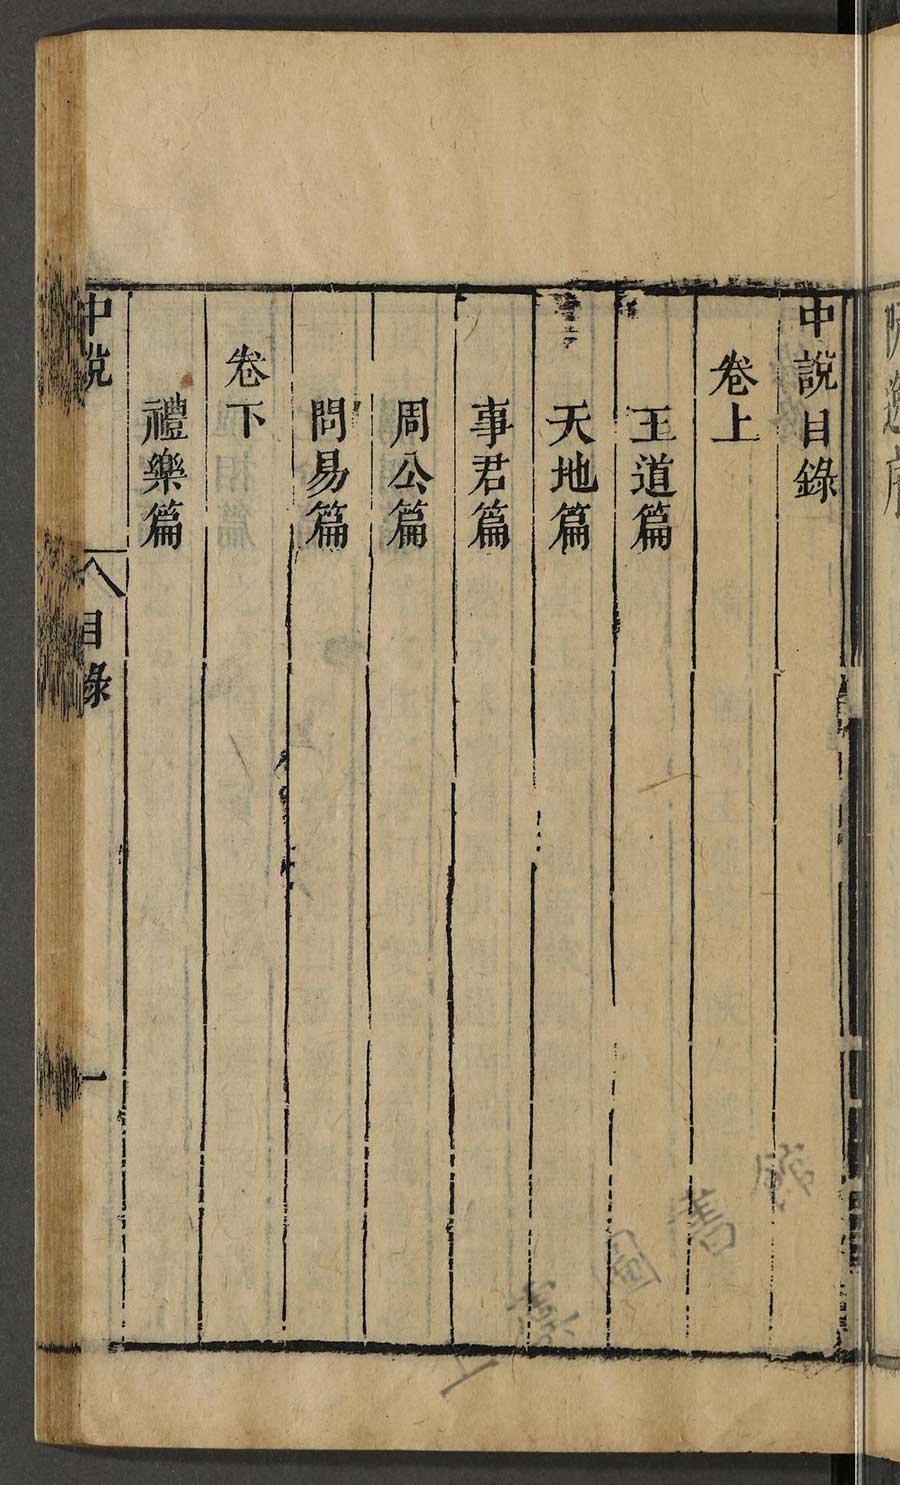 中說目錄
卷上
王道篇
天地篇
事君篇
周公篇
問易篇
卷下
禮樂篇
中說
目錄
一